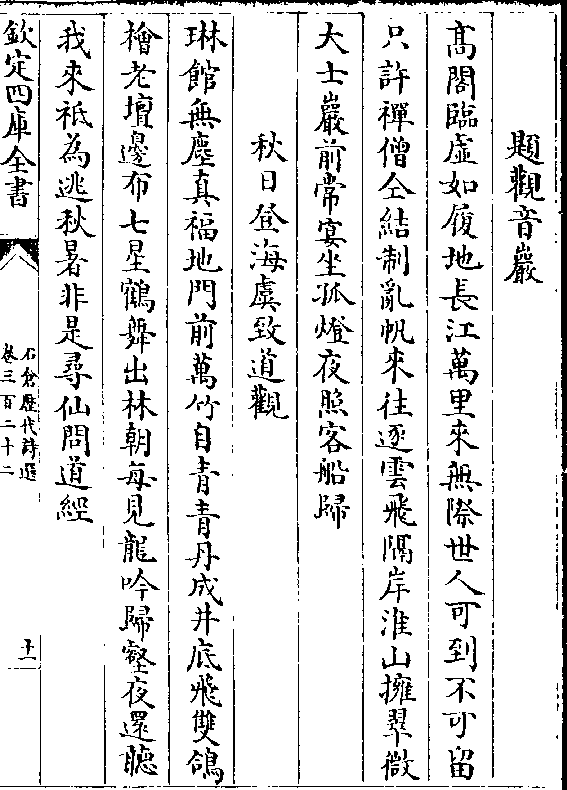 題觀音巖
髙閣臨虛如履地長江萬里來無際世人可到不可留
只許禪僧仝結制亂帆來往逐雲飛隔岸淮山擁翠微
大士巖前常宴坐孤燈夜照客船歸
秋日登海虞致道觀
琳館無塵真福地門前萬竹自青青丹成井底飛雙鴿
檜老壇邊布七星鶴舞出林朝每見龍吟歸壑夜還聽
我來袛為逃秋暑非是尋仙問道經
欽定四庫全書
石倉歴代詩選
卷三百二十二
十一